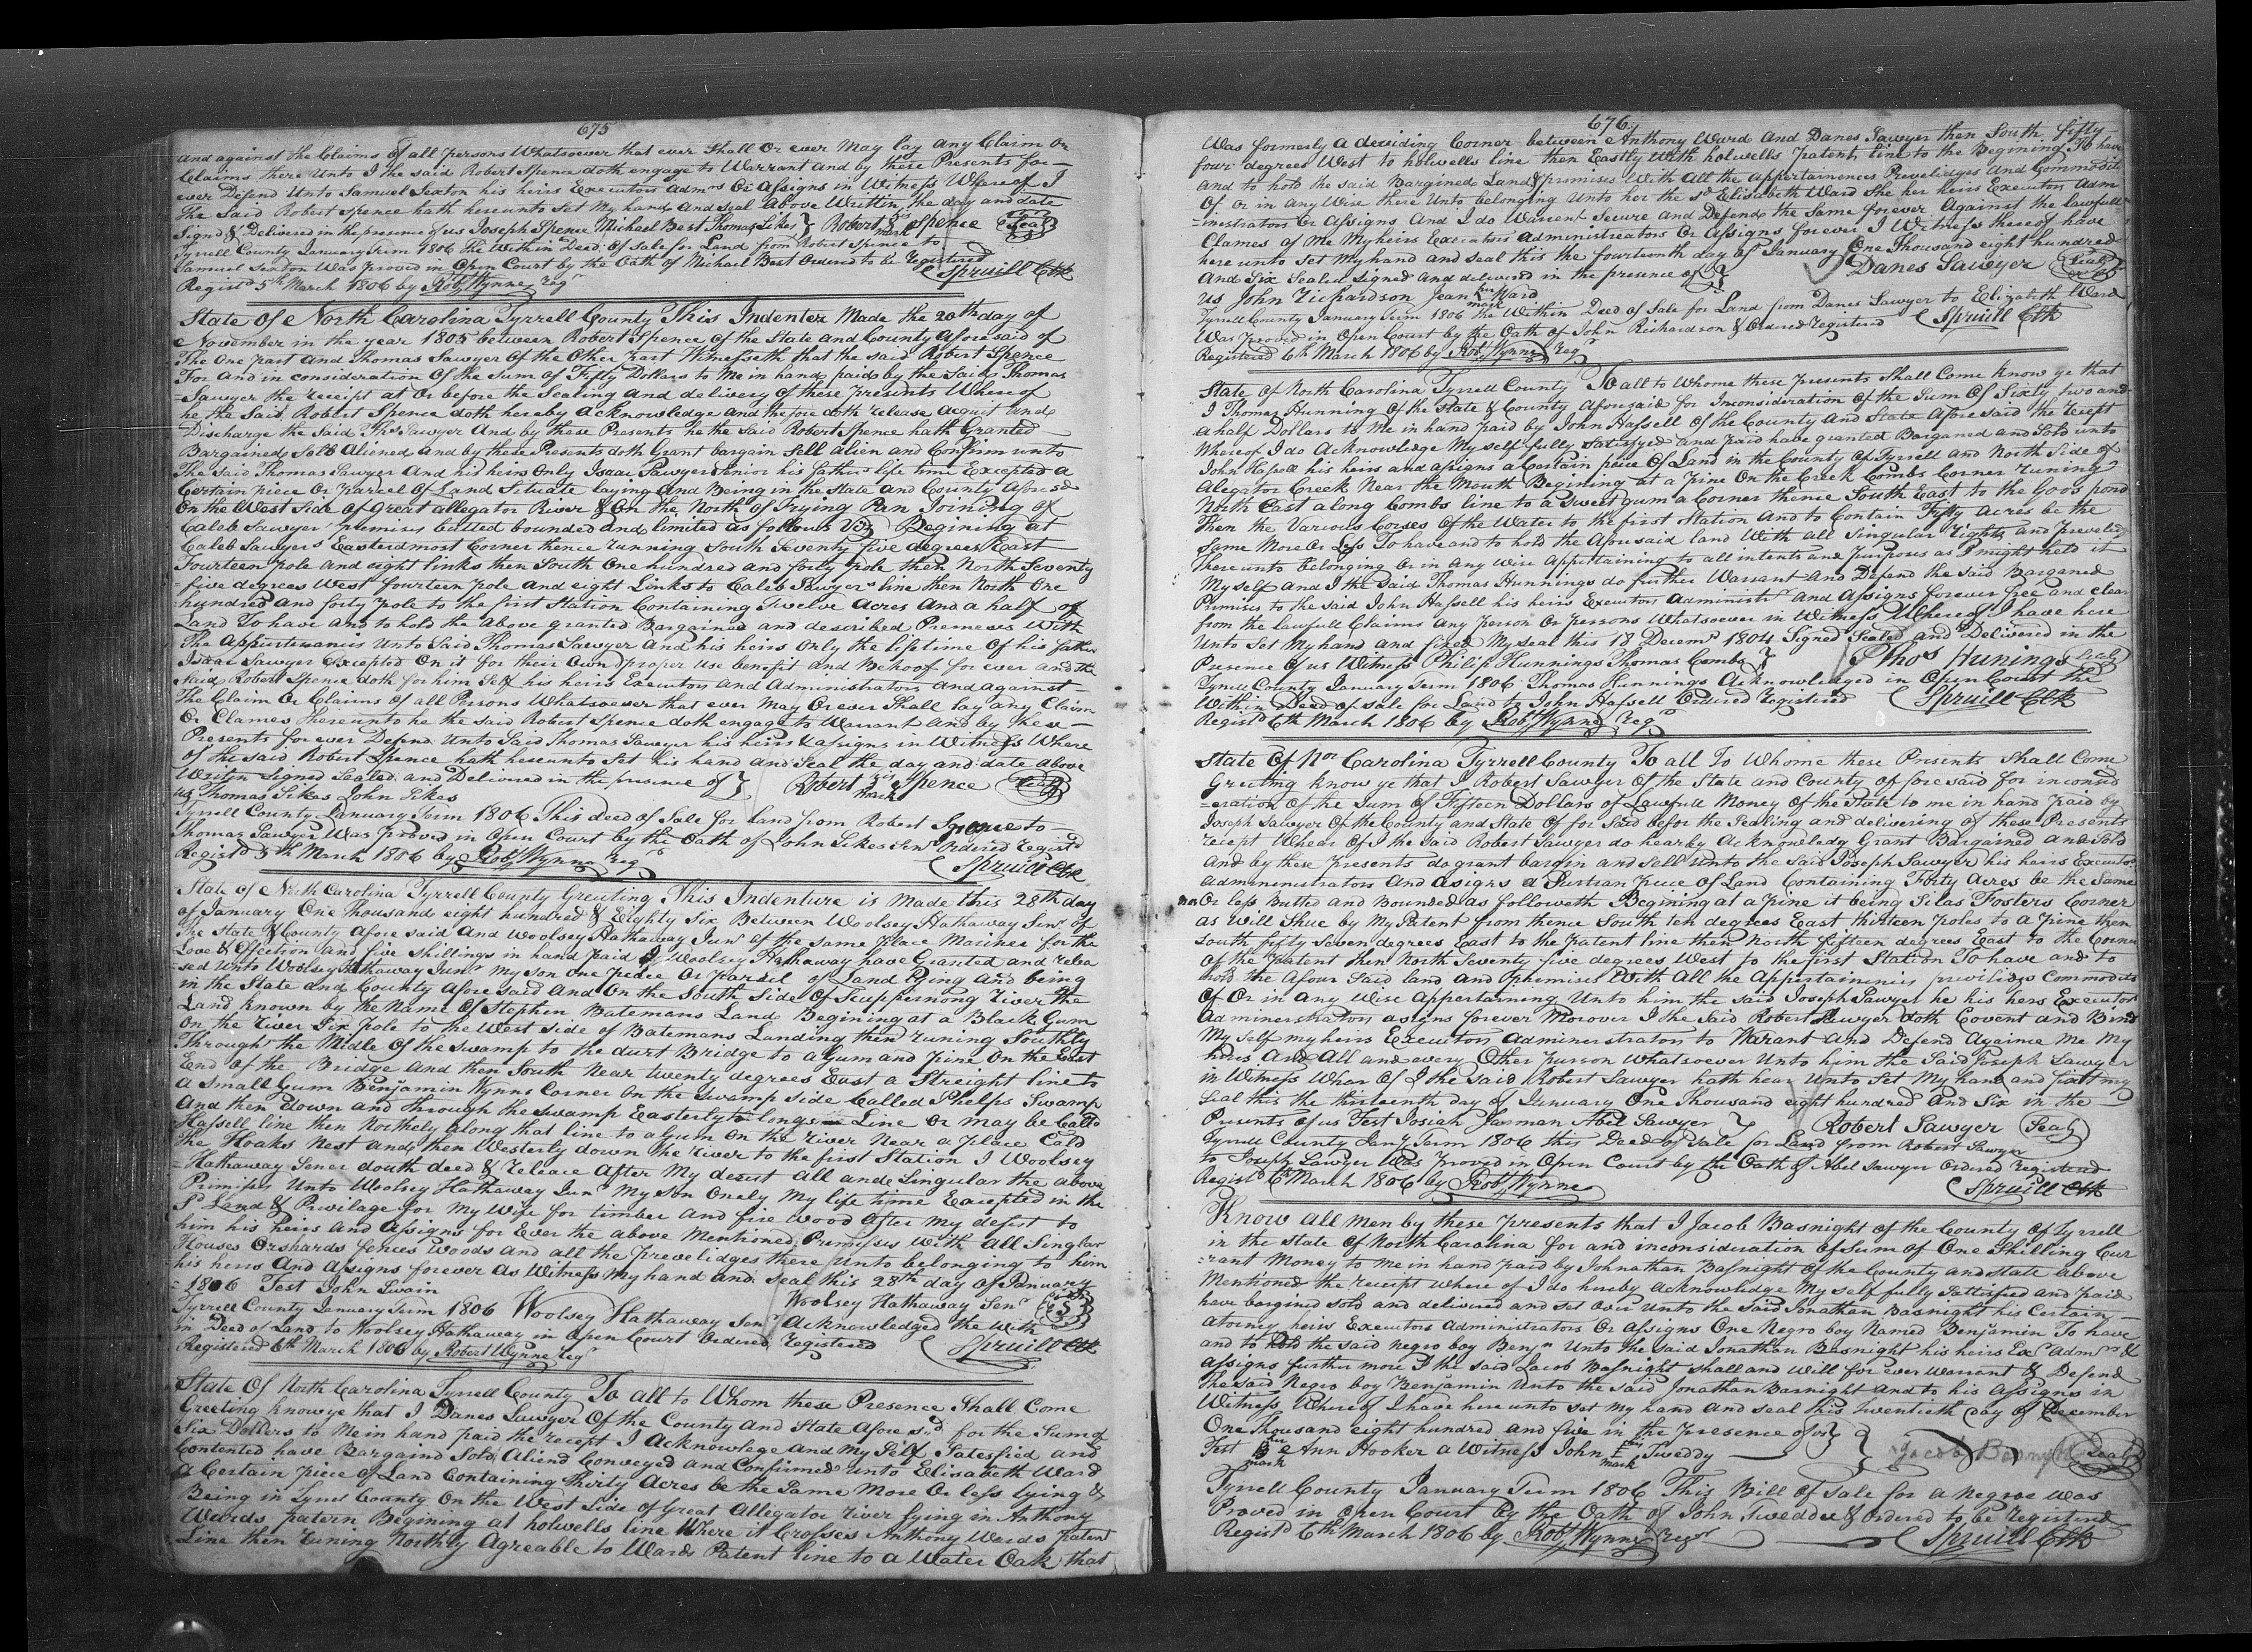 675
and against the Claims of all persons Whatsoever that ever Shall Or ever May lay any Claim Or
Claims there Unto I the said Robert Spence doth engage to Warrant and by these Presents for =
ever Defend Unto Samuel Sexton his heirs Executors admrs Or Assigns in Witness Whereof I
The Said Robert Spence hath hereunto Set My hand and seal above Written, the day and date
Signd & Delivered in the presence of us Joseph Spence Michael Best Thomas Sikes } Robert his mark Spence Seal
Tyrrell County January Term 1806 the Within Deed of sale for Land from Robert Spence to
Samuel Sexton Was proved in Open Court by the Oath of Michael Best Ordered to be Registered
Registd 5th March 1806 by Robt Wynne regr Spruill Clk
State Of North Carolina Tyrrell County This Indenter Made the 20th day of
November in the year 1805 between Robert Spence of the State and County Aforesaid of
The One part and Thomas Sawyer Of the Other part Witnesseth that the said Robert Spence
For and in consideration Of the Sum of Fifty Dollars to Me in hand paid by the Said Thomas
Sawyer the receipt at Or before the Sealing and delivery of these presents Where of
he the Said Robert Spence doth hereby acknowledge and therefore doth release acquit and
Discharge the Said Thos Sawyer And by these Presents he the Said Robert Spence hath Granted
Bargained Sold Aliened And by these Presents doth Grant bargain Sell alien and Confirm unto
The Said Thomas Sawyer And his heirs Only Isaac Sawyer Senior his father life time Excepted a
Certain piece Or parcel Of Land Situate laying And Being in the State and County Aforesd
On the West Side Of great allegator River & On the North of Frying Pan Joining of
Caleb Sawyers premises butted bounded and limited as follows Viz Begining at
Caleb Sawyers Easterdmost Corner thence running South Seventy five degrees East
Fourteen pole and eight links then South One hundred and forty pole then North Seventy
= five degrees West fourteen pole and eight Links to Caleb Sawyers line then North One
hundred and forty pole to the first Station Containing Twelve Acres And a half of
Land To have and to hold the above granted Bargained and described Premeses With
The Appurtenances Unto Said Thomas Sawyer And his heirs Only the lifetime Of his father
Isaac Sawyer Excepted On it for their Own proper use benefit and Behoof for ever and the
Said Robert Spence doth for him Self his heirs Executors and administrators and against
The Claim Or Claims of all Persons Whatsoever that ever May Or ever Shall lay any Claim
Or Clames Thereunto he the said Robert Spence doth engage to Warrant and by these =
Presents for ever Defend Unto Said Thomas Sawyer his heirs & assigns in Witness Where
of the said Robert Spence hath hereunto Set his hand and Seal the day and date above
Writen Signed Sealed and Delivered in the presence of } Robert his mark Spence Seal
us Thomas Sikes John Sikes
Tyrrell County January Term 1806 This deed of Sale for Land from Robert Spence to
Thomas Sawyer Was proved in Open Court by the Oath of John Sikes Ordered Registd
Registd 5th March 1806 by Robt Wynne regr Spruill Clk
State of North Carolina Tyrrell County Greeting This Indenture is Made this 28th day
of January One Thousand eight hundred & Eighty Six Between Woolsey Hathaway Senr of
The State & County Afore said And Woolsey Hathaway Junr of the same place Mariner for the
Love & Affection and five shillings in hand paid I Woolsey Hathaway have Granted and relea
sed Unto Woolsey Hathaway Junr My son One peace Or parsel of Land lying and being
in the State and County Afore said And On the South Side Of Scuppernong River the
Land known by the Name Of Stephen Batemans Land Begining at a Black Gum
On the river Six pole to the West Side of Batemans Landing then runing Southly
Through the Midle Of the Swamp to the durt Bridge to a Gum and pine On the East
End of the Bridge And then South Near twenty degrees East a Streight line to
a Small Gum Benjamin Wynns Corner On the Swamp side Called Phelps Swamp
And then down and through the swamp Easterly to longs Line Or may be Calld
Hassell line then Northely along that line to a Gum On the River Near a place Cald
The Hoaks Nest and then Westerly down the river to the first Station I Woolsey
Hathaway Sener douth deed & release After My desest all and Singular the above
Primises Unto Woolsey Hathaway Junr My Son Onely My life time Excepted in the
Sd Land & Privilage for My Wife for timber and fire wood after My desest to
him his heirs and Assigns for Ever the above Mentioned Premises With all Singlar
Houses Orshards fences Woods and all the prevelidges there Unto belonging to him
his heirs And Assigns forever As Witness My hand and Seal this 28th day of January
= 1806 Test John Swain Woolsey Hathaway Senr Seal
Tyrrell County January Term 1806 Woolsey Hathaway Senr Acknowledged the With
in Deed of Land to Woolsey Hathaway in Open Court Ordered Registered
Registered 6th March 1806 by Robert Wynne Regr Spruill Clk
State Of North Carolina Tyrrell County To all to Whom these Presence Shall Come
Greeting know ye that I Danes Sawyer Of the County and State Afore sd for the Sum of
Six Dollers to Me in hand paid the recept I Acknowlage and My Self Satesfied and
Contented have Bargaind Sold Aliend Conveyed and Confirmed Unto Elisabeth Ward
a Certain piece of Land Containing thirty Acres be the Same More Or less lying &
Being in Tyrrel County On the West Side of Great Allegator River lying in Anthony
Wards patern Begining at holwells line Where it Crosses Anthony Wards patent
Line then runing Northly Agreable to Wards Patent line to a Water Oak that
676
Was formerly a deviding Corner between Anthony Ward and Danes Sawyer then South fifty
four degrees West to holwells line then Eastly With holwells patent line to the Begining To have
and to hold the said Bargined Land & premises With all the Appertainences Preveledges And Commodit
Of Or in any Wise there Unto belonging Unto her the sd Elisabeth Ward She her heirs Executors Adm
= inestrators Or Assigns And I do Warrent Secure and Defend the Same forever Against the lawfull
Clames of Me My heirs Executors Administreators Or Assigns forever I Witness thereof have
here unto Set My hand and Seal this the fourteenth day of January One Thousand eight hundred
And Six Sealed Signed and delivered in the presence of } Danes Sawyer Seal
us John Richardson Jean her mark Ward
Tyrrell County January Term 1806 the Within Deed of Sale for Land from Danes Sawyer to Elizabeth Ward
Was proved in Open Court by the Oath of John Richardson & Ordered Registered Spruill Clk
Registered 6th March 1806 by Robt Wynne regr
State Of North Carolina Tyrrell County To all to Whome these presents Shall Come Know ye that
I Thomas Hunning Of the State & County Aforesaid for Inconsideration Of the Sum Of Sixty two and
a half Dollars to Me in hand paid by John Hassell Of the County And State Afore said the recept
Whereof I do Acknowledge My self fully Satisfyed and paid have granted Barganed and Sold unto
John Hassell his heirs and assigns a Certain peice Of Land in the County Of Tyrrell and North Side of
Alegator Creek Near the Mouth Begining at a pine On the Creek Combs Corner runing
North East along Combs line to a Sweet gum a Corner thence South East to the Goos pond
Then the Various Corses Of the Water to the first Station And to Contain Fifty Acres be the
Same More Or Less To have and to hold the Aforesaid land With all Singular rights and preveledg
thereunto belonging Or in any Wise Appertaining to all intents and purposes as I might hold it
My self and I the Said Thomas Hunnings do further Warrant And Defend the Said Barganed
Primises to the said John Hassell his heirs Executors Administrs And Assigns forever free and clear
from the lawfull Claims any person Or persons Whatsoever in Witness Whereof I have here
Unto Set My hand and fixed My seal this 18 Decemr 1804 Signed Sealed and Delivered in the
Presence of us Witness Philip Hunnings Thomas Combs } Thos Hunings Seal
Tyrrell County January Term 1806 Thomas Hunnings Acknowledged in Open Court the
Within Deed of sale for Land to John Hassell Ordered Registered Spruill Clk
Registd 6th March 1806 by Robt Wynne Regr
State Of Nor Carolina Tyrrell County To all To Whome these Presents Shall Come
Greeting know ye that I Robert Sawyer Of the State and County of foresaid for inconsid
= eration Of the Sum Of Fifteen Dollars of Lawfull Money Of the State to me in hand paid by
Joseph Sawyer Of the County and State Of for Said befor the Sealing and delivering of these Presents
recept Whear Of I the Said Robert Sawyer do hearby Acknowledg Grant Bargained and Sold
And by these Presents do grant bargin and Sell Unto the Said Joseph Sawyer his heirs Executors
Admminestrators And asigns a Surtian piece Of Land Containing Forty Acres be the Same
Or less Butted and Bounded as followeth Begining at a pine it being Silas Fosters Corner
as Will Shue by My Patent from thence South ten degrees East thirteen poles to a pine then
South fifty Seven degrees East to the patent line then North fifteen degrees East to the Corner
Of the Patent then North Seventy five degrees West to the first Station To have and to
hold the Afour Said land and premises With All the Appertainences privilidge Commodits
Of Or in any Wise Appertaining Unto him the Said Joseph Sawyer he his hers Executor
Adminerstrators asigns forever Morover I the Said Robert Sawyer doth Covent and Bind
My self my heirs Executors Adminerstrators to Warant And Defend Againce Me My
hires And All and every Other person Whatsoever Unto him the Said Joseph Sawyer
in Witness Whar Of I the said Robert Sawyer hath hear Unto Set My hand and fixt my
Seal this the thirteenth day of January One Thousand eight hundred And Six in the
Presents of us Test Josiah Jarman Abel Sawyer } Robert Sawyer Seal
Tyrrell County Jany Term 1806 this Deed of Sale for Land from Robert Sawyer
to Joseph Sawyer Was proved in Open Court by the Oath of Abel Sawyer Ordered Registered
Registd 6th March 1806 by Robt Wynne Spruill Clk
Know all Men by these presents that I Jacob Basnight of the County Of Tyrrell
in the State Of North Carolina for and inconsideration Of Sum of One Shilling Cur
= rant Money to Me in hand paid by Johnathan Basnight Of the County and State above
Mentioned the receipt where of I do hereby Acknowledge My self fully Sattisfied and paid
have bargined sold and delivered and Set Over Unto the Said Jonathan Basnight his Certain
Atorney heirs Executors Administrators Or Assigns One Negro boy Named Benjamin To have
and to hold the said negro boy Benjn Unto the Said Jonathan Basnight his heirs Exs Admrs &
Assigns further more I the said Jacob Basnight Shall and Will for ever Warrant & Defend
The said Negro boy Benjamin Unto the Said Jonathan Basnight And to his Assigns in
Witness Whereof I have here unto Set My hand and Seal this Twentieth day Of December
One thousand eight hundred and five in the presence of us }
Test her mark Ann Hooker a Witness John his mark Tweddy } Jacob Basnight Seal
Tyrrell County January Term 1806 This Bill Of Sale for a Negroe Was
Proved in Open Court by the Oath of John Tweddee & Ordered to be Registered
Registd 6th March 1806 by Robt Wynne Regr Spruill Clk